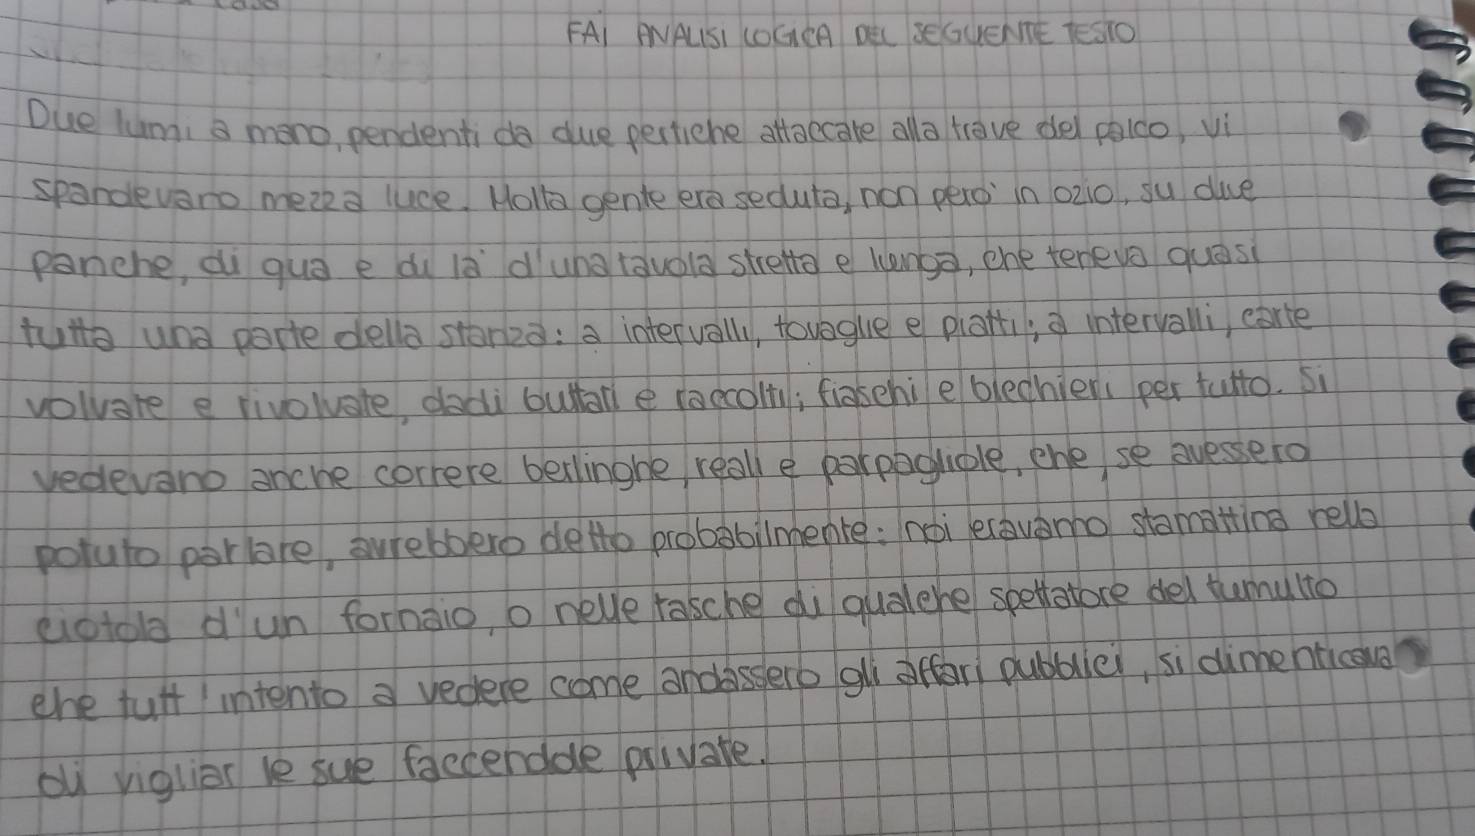 FAI ANALISI LOGICA DEL SEGUENTE TESTO
Due lumi a mano, pendenti da due pertiche attaccate alla trave del palco, vi
spandevano mezza luce. Molta gente era seduta, non però in ozio, su due
panche, di qua e di là d'una tavola stretta e lunga, che teneva quasi
tutta una parte della stanza: a intervalli, tovaglie e piatti; a intervalli, carte
voltate e rivoltate, dadi buttati e raccolti; fiaschi e bicchieri per tutto. Si
vedevano anche correre berlinghe, reali e parpagliole, che, se avessero
potuto parlare, avrebbero detto probabilmente: noi eravamo stamattina nella
ciotola d'un fornaio, o nelle tasche di qualche spettatore del tumulto
che tutt'intento a vedere come andassero gli affari pubblici, si dimenticava
di vigilar le sue faccendole private.